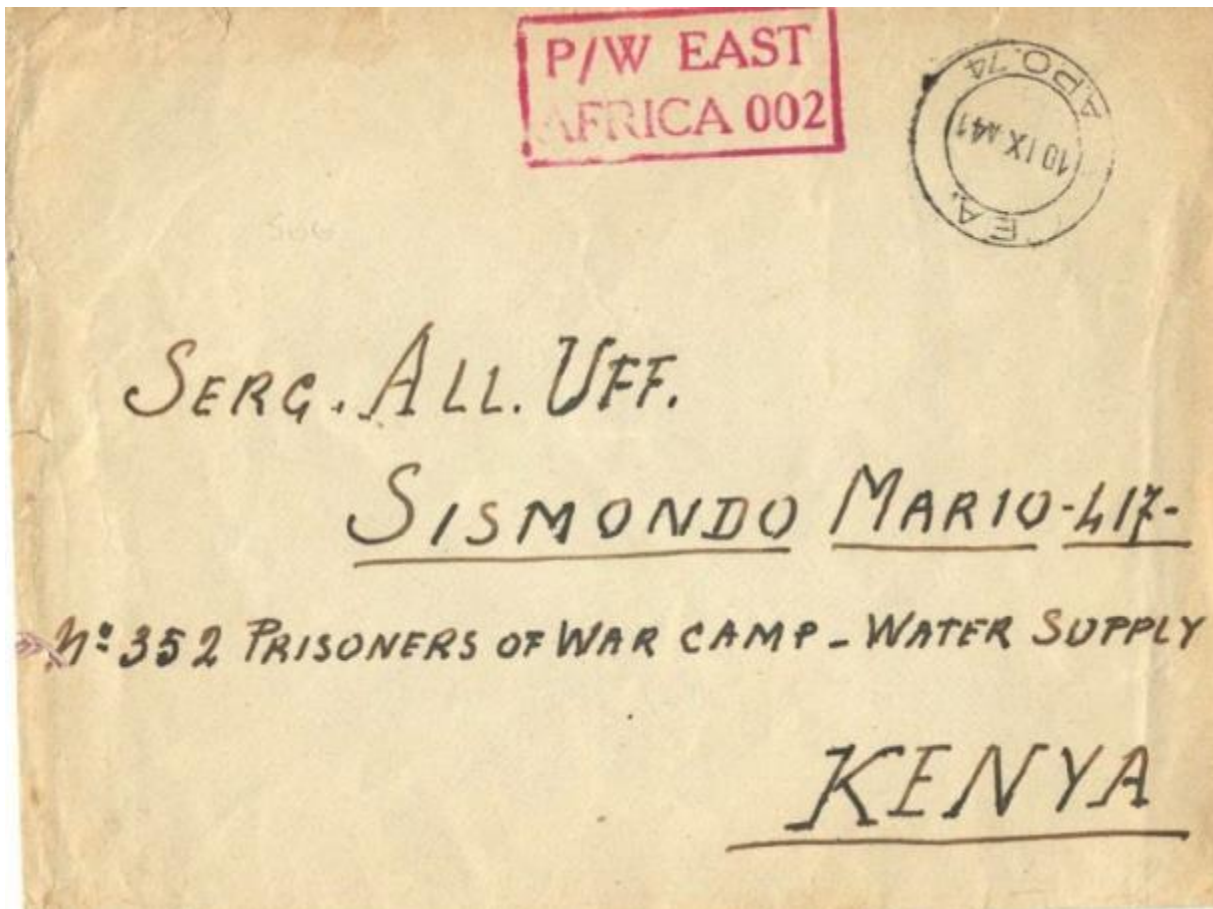 P/W EAST
AFRICA 002
E.A.
A.P.O. 74
10 IX 41
SERG. ALL. UFF.
SISMONDO MARIO-417-
Nº 352 PRISONERS OF WAR CAMP - WATER SUPPLY
KENYA